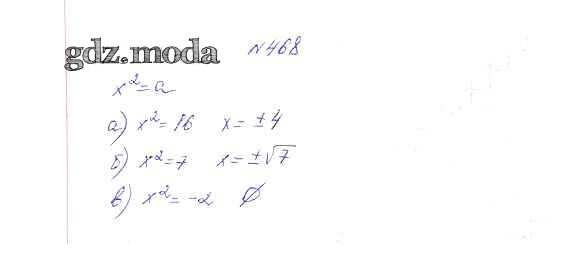 gdz.moda №468
x²=a
а) x²=16 x=±4
б) x²=7 x=±√7
в) x²=-2 ∅